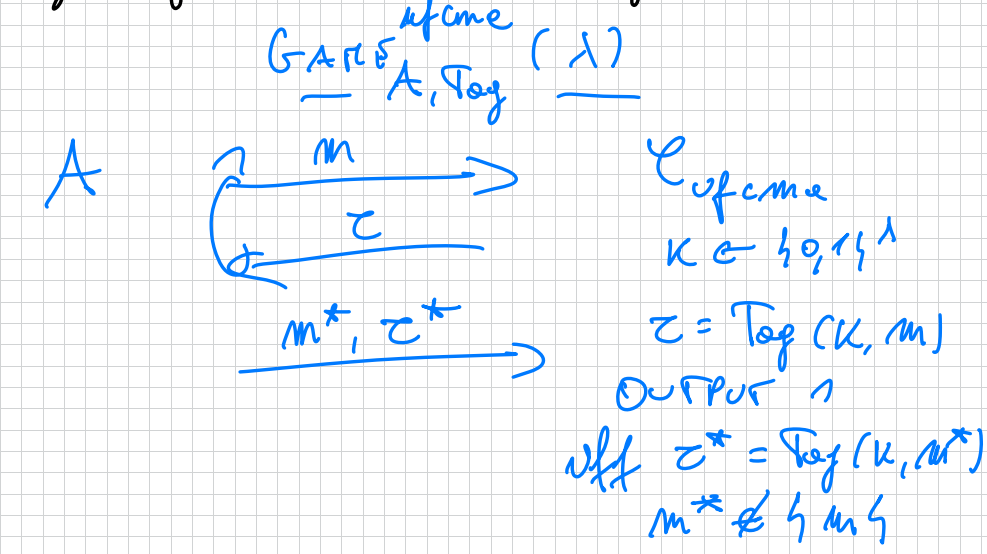 GAME^{ufcma}_{A, Tag} (λ)
A
m
C_{ufcma}
τ
K ← {0,1}^λ
m*, τ*
τ = Tag (K, m)
OUTPUT 1
iff τ* = Tag (K, m*)
m* ∉ {m}